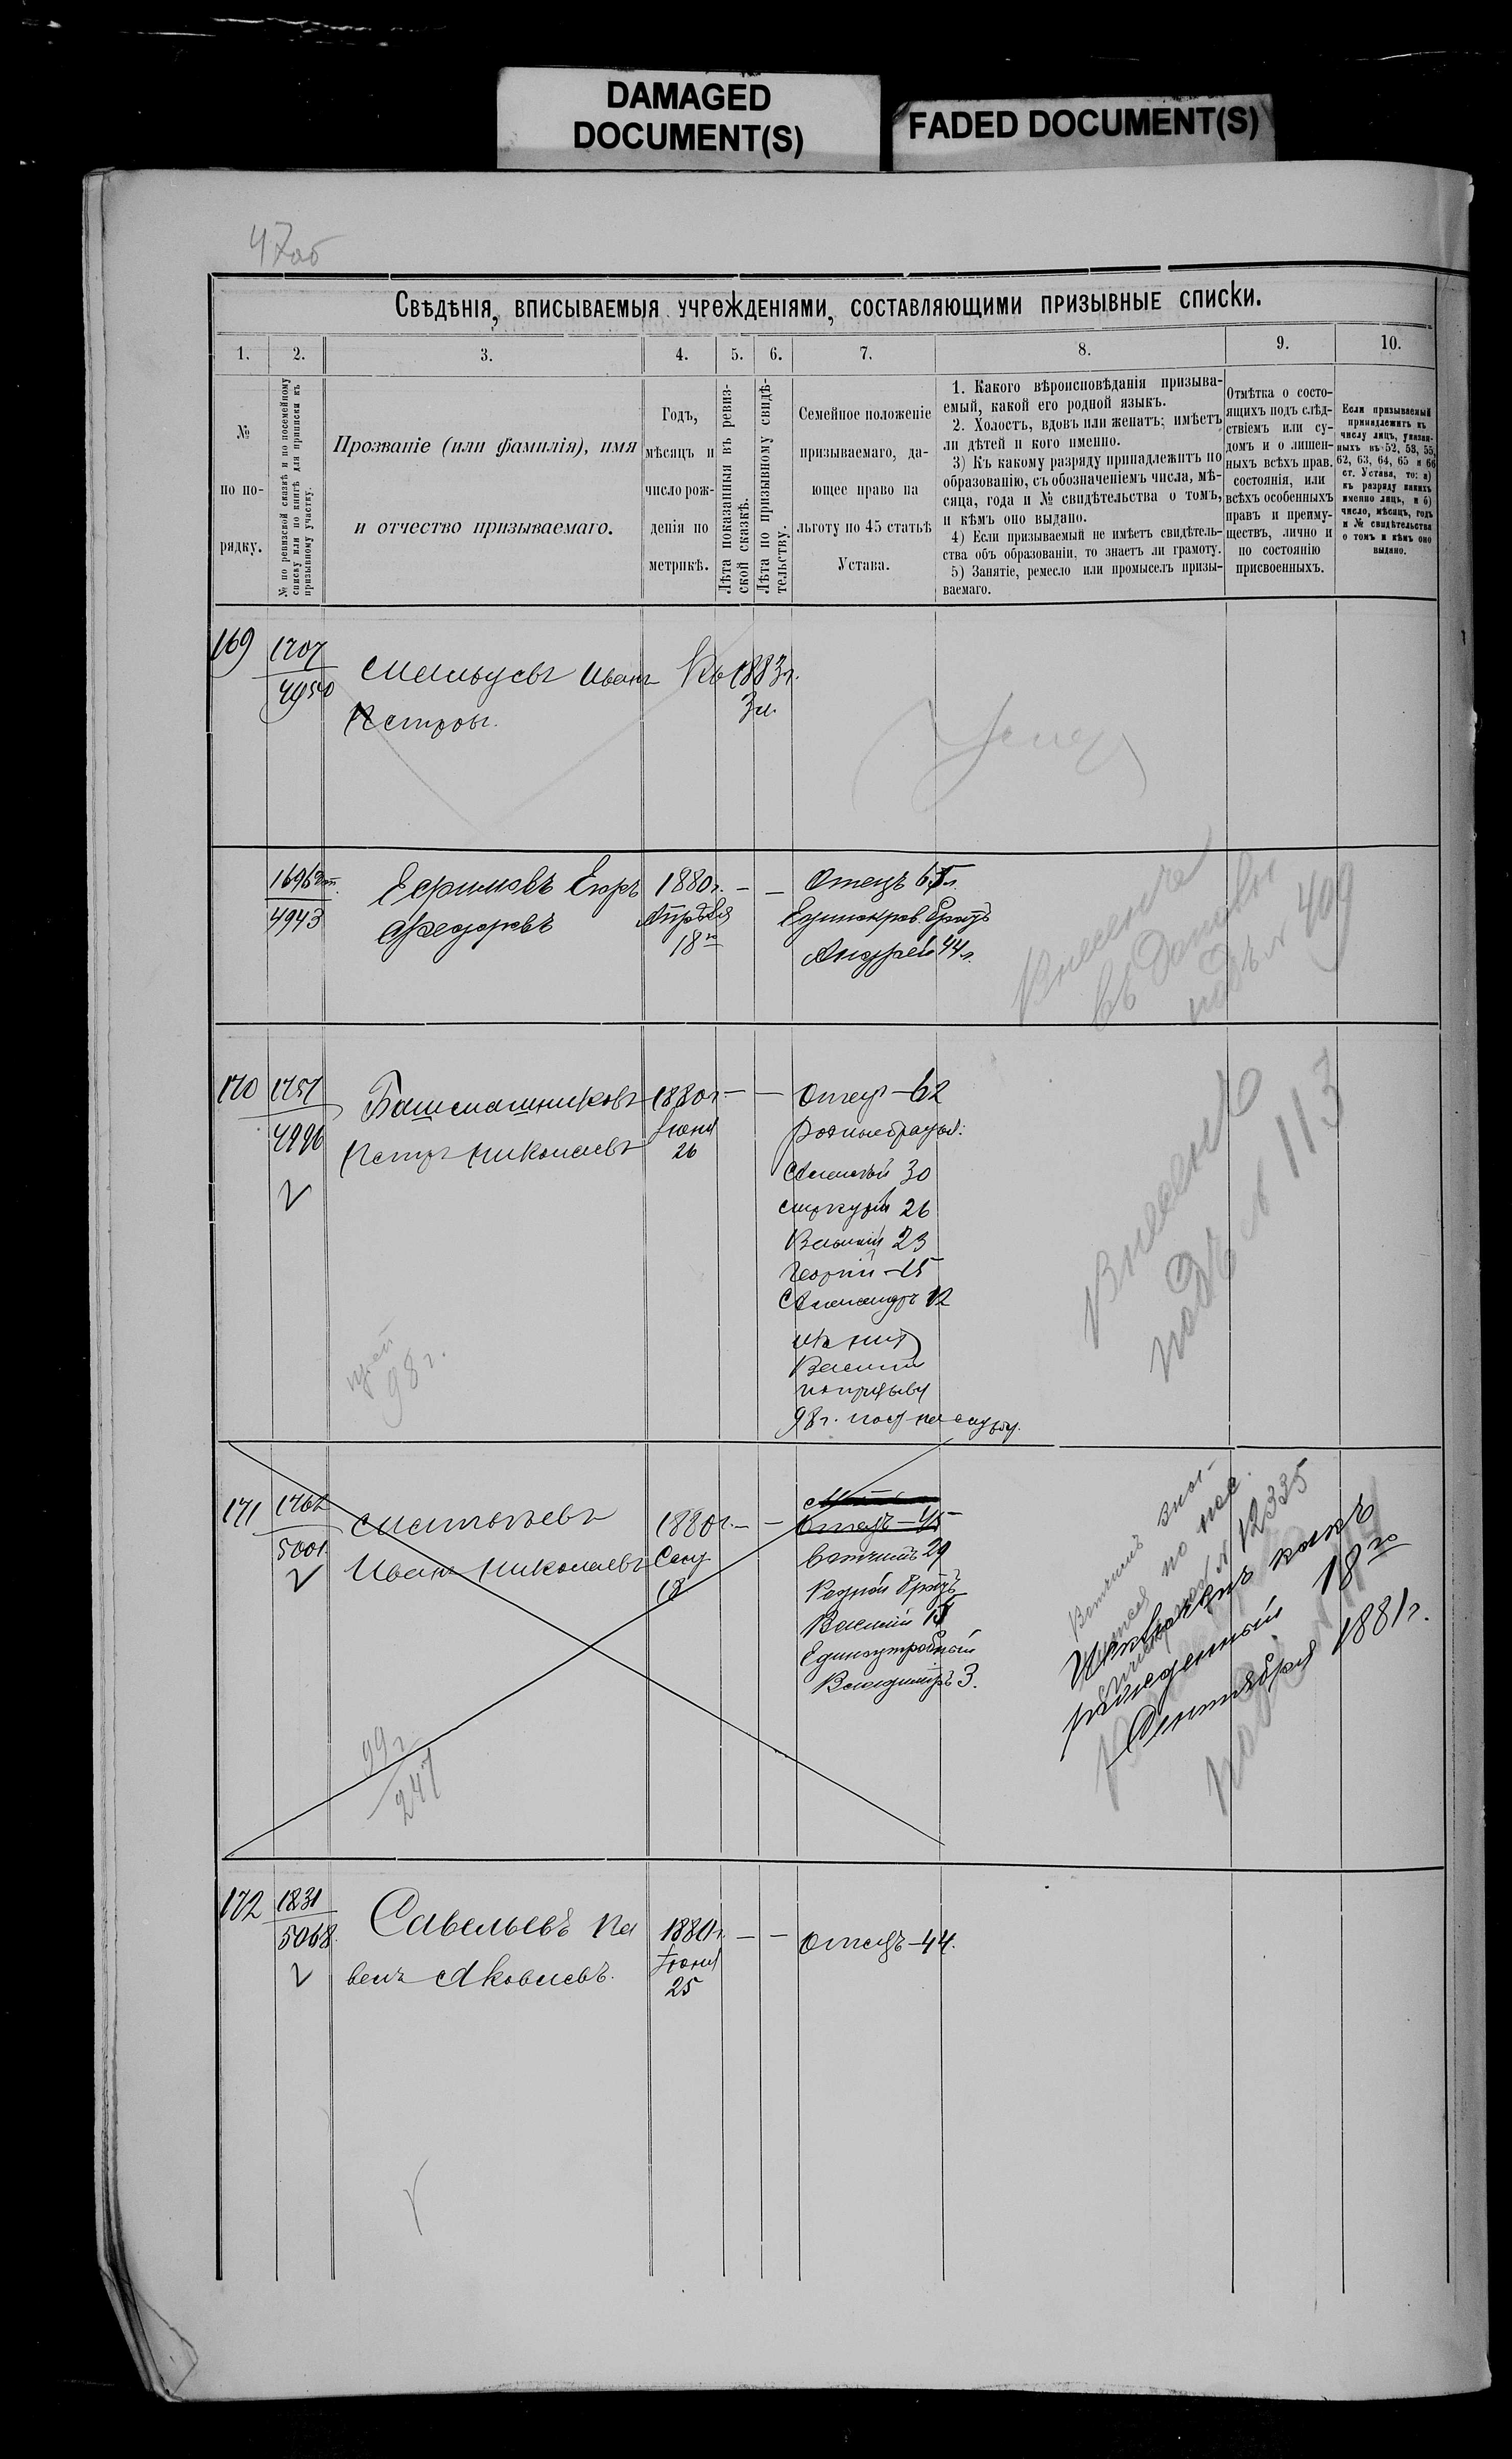 DAMAGED
DOCUMENT(S)
FADED DOCUMENT(S)
47об
Свѣдѣнія, вписываемыя учрежденіями, составляющими призывные списки.
1. 2. 3. 4. 5. 6. 7. 8. 9. 10.
№
по по-
рядку.
№ по ревизской сказкѣ и по посемейному
списку или по книгѣ для приписки къ
призывному участку.
Прозваніе (или фамилія), имя
и отчество призываемаго.
Годъ,
мѣсяцъ и
число рож-
денія по
метрикѣ.
Лѣта показанныя въ ревиз-
ской сказкѣ.
Лѣта по призывному свидѣ-
тельству.
Семейное положеніе
призываемаго, да-
ющее право на
льготу по 45 статьѣ
Устава.
1. Какого вѣроисповѣданія призыва-
емый, какой его родной языкъ.
2. Холостъ, вдовъ или женатъ; имѣетъ
ли дѣтей и кого именно.
3) Къ какому разряду принадлежитъ по
образованію, съ обозначеніемъ числа, мѣ-
сяца, года и № свидѣтельства о томъ,
и кѣмъ оно выдано.
4) Если призываемый не имѣетъ свидѣтель-
ства объ образованіи, то знаетъ ли грамоту.
5) Занятіе, ремесло или промыселъ призы-
ваемаго.
Отмѣтка о состо-
ящихъ подъ слѣд-
ствіемъ или су-
домъ и о лишен-
ныхъ всѣхъ прав.
состоянія, или
всѣхъ особенныхъ
правъ и преиму-
ществъ, лично и
по состоянію
присвоенныхъ.
Если призываемый
принадлежитъ къ
числу лицъ, указан-
ныхъ въ 52, 53, 55,
62, 63, 64, 65 и 66
ст. Устава, то: а)
къ разряду какихъ
именно лицъ, и б)
число, мѣсяцъ, годъ
и № свидѣтельства
о томъ и кѣмъ оно
выдано.
169
1707
4950
Иванъ
Петровъ.
Къ 1883г.
3 л.
1696
4943
Ефимовъ Егоръ
Ѳедоровъ
1880г.
Апрѣля
18го
Отецъ 65л.
Единокров. братъ
Андрей 44л.
Внесенъ
въ Дополн
подъ № 409
170
1757
4996
Башмашниковъ
Петръ Николаевъ
1880г.
Іюня
26
Отецъ - 62
Родные братья:
Алексѣй 30
Меркурій 26
Василій 23
Георгій - 15
Александръ 12
Изъ нихъ
Василій
по призыву
98г. пост. на службу.
98г.
Внесенъ
подъ № 113
171
1762
5001
Матвѣевъ
Иванъ Николаевъ
1880г.
Сент
18
Отецъ - 45
Вотчимъ 29
Родной братъ
Василій 15
Единоутробный
Владиміръ 3.
99г
247
Вотчимъ
№ 12335
Исключенъ какъ
рожденный 18го
Сентября 1881г.
172
1831
5068.
Савельевъ Па
велъ Яковлевъ.
1880г.
Іюня
25
Отецъ - 44.